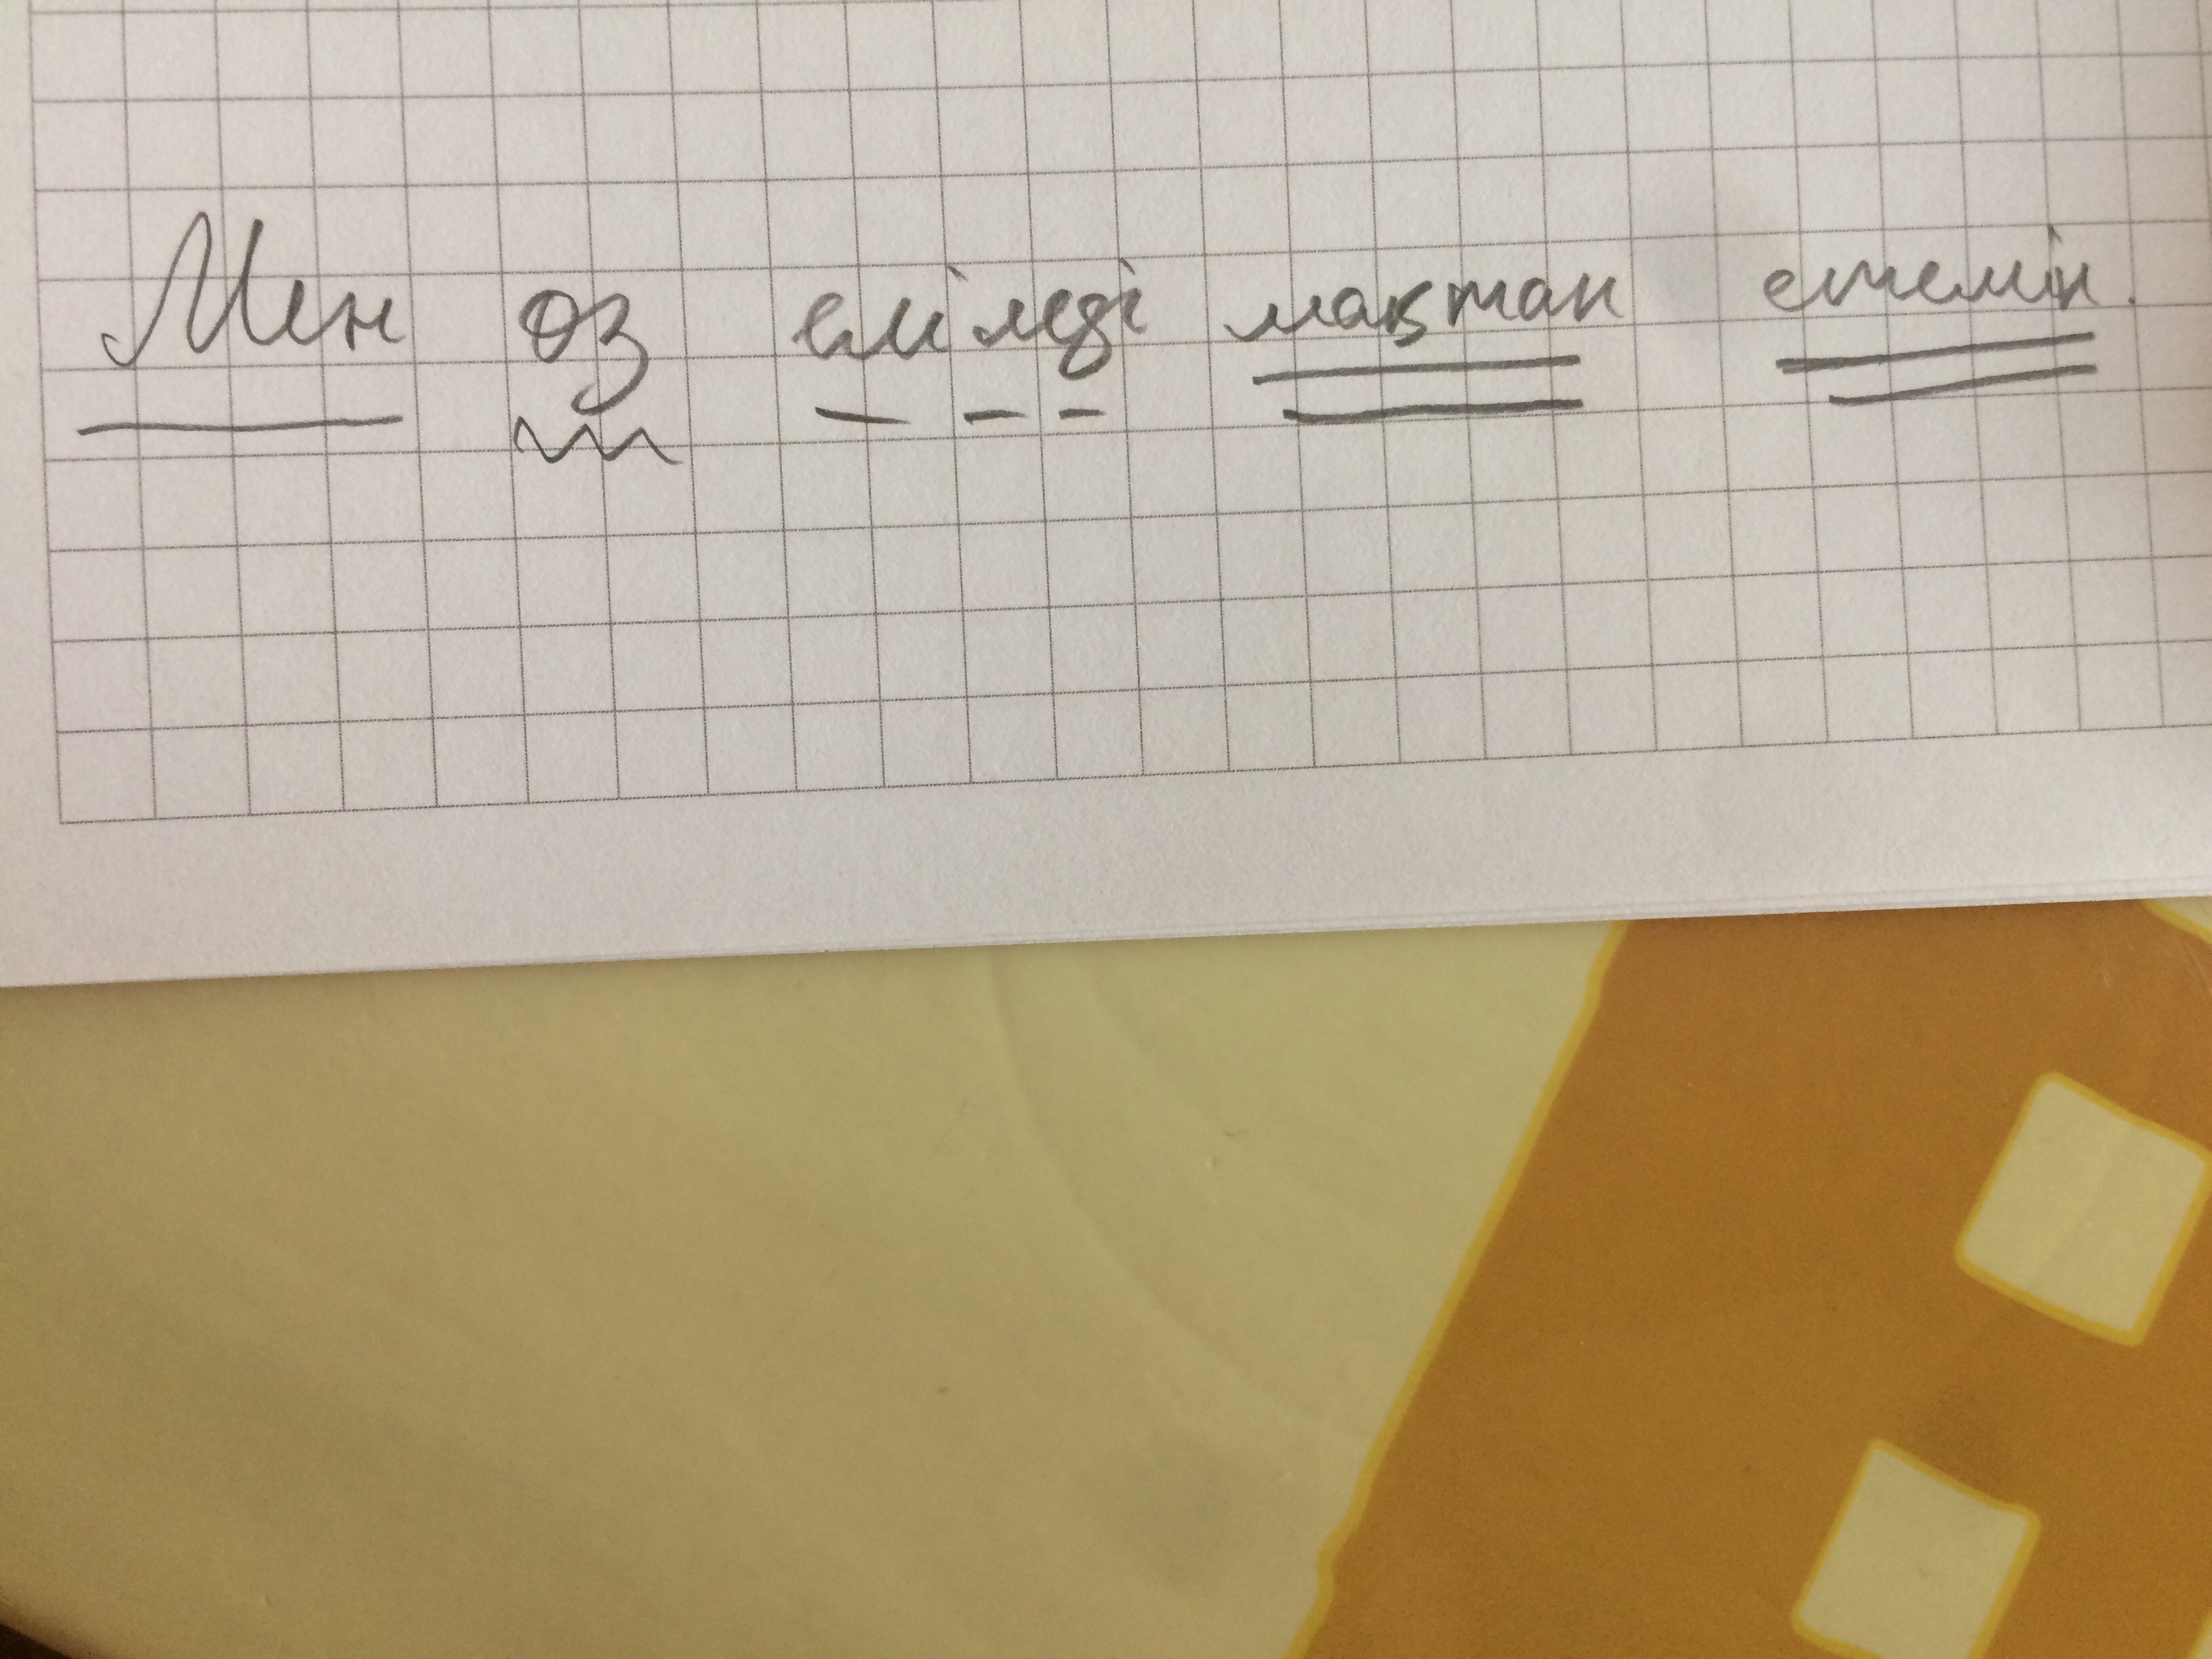 Мен өз елімді мақтан етемін.